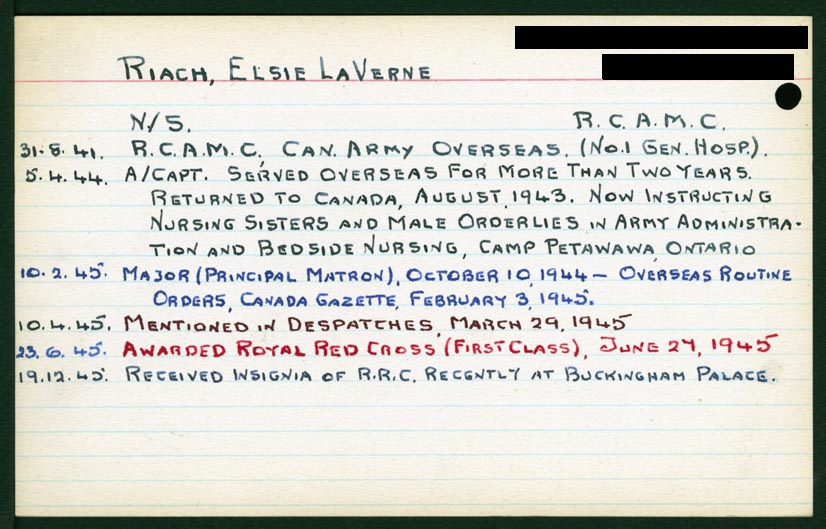 RIACH, ELSIE LAVERNE
N/S. R.C.A.M.C.
31.5.41. R.C.A.M.C, CAN. ARMY OVERSEAS. (NO.1 GEN. HOSP.).
5.4.44. A/CAPT. SERVED OVERSEAS FOR MORE THAN TWO YEARS.
RETURNED TO CANADA, AUGUST, 1943. NOW INSTRUCTING
NURSING SISTERS AND MALE ORDERLIES IN ARMY ADMINISTRA-
TION AND BEDSIDE NURSING, CAMP PETAWAWA, ONTARIO
10.2.45. MAJOR (PRINCIPAL MATRON), OCTOBER 10, 1944 — OVERSEAS ROUTINE
ORDERS, CANADA GAZETTE, FEBRUARY 3, 1945.
10.4.45. MENTIONED IN DESPATCHES, MARCH 29, 1945
23.6.45. AWARDED ROYAL RED CROSS (FIRST CLASS), JUNE 27, 1945
19.12.45. RECEIVED INSIGNIA OF R.R.C. RECENTLY AT BUCKINGHAM PALACE.